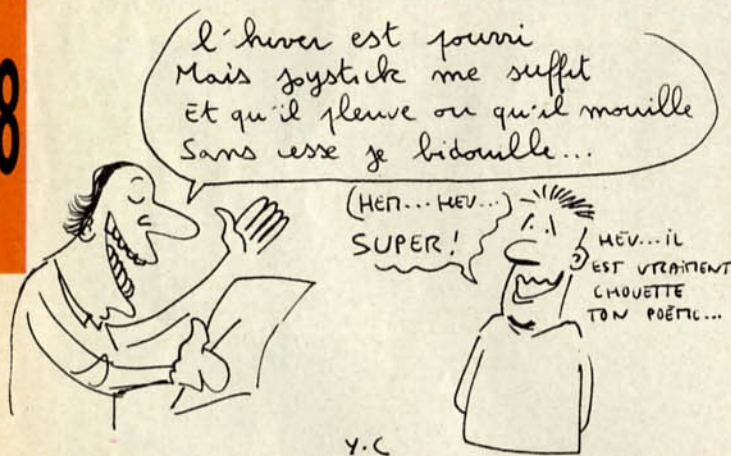 8
l'hiver est pourri
Mais joystick me suffit
Et qu'il pleuve ou qu'il mouille
Sans cesse je bidouille...
(HEM... HEU...)
SUPER!
HEU... IL
EST VRAIMENT
CHOUETTE
TON POÈME...
Y.C